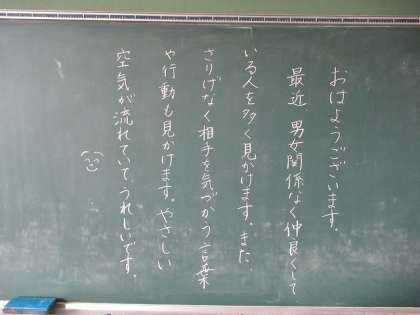 おはようございます。
最近 男女関係なく仲良くして
いる人を多く見かけます。また
さりげなく相手を気づかう言葉
や行動も見かけます。やさしい
空気が流れていてうれしいです。